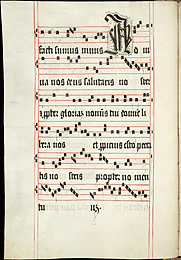 facti sumus nimis
ua nos deus salutaris no ster
ppter gloriam nominis tui domine li
bera nos et ppicius esto pecca
tis no stris propter no men
tu um